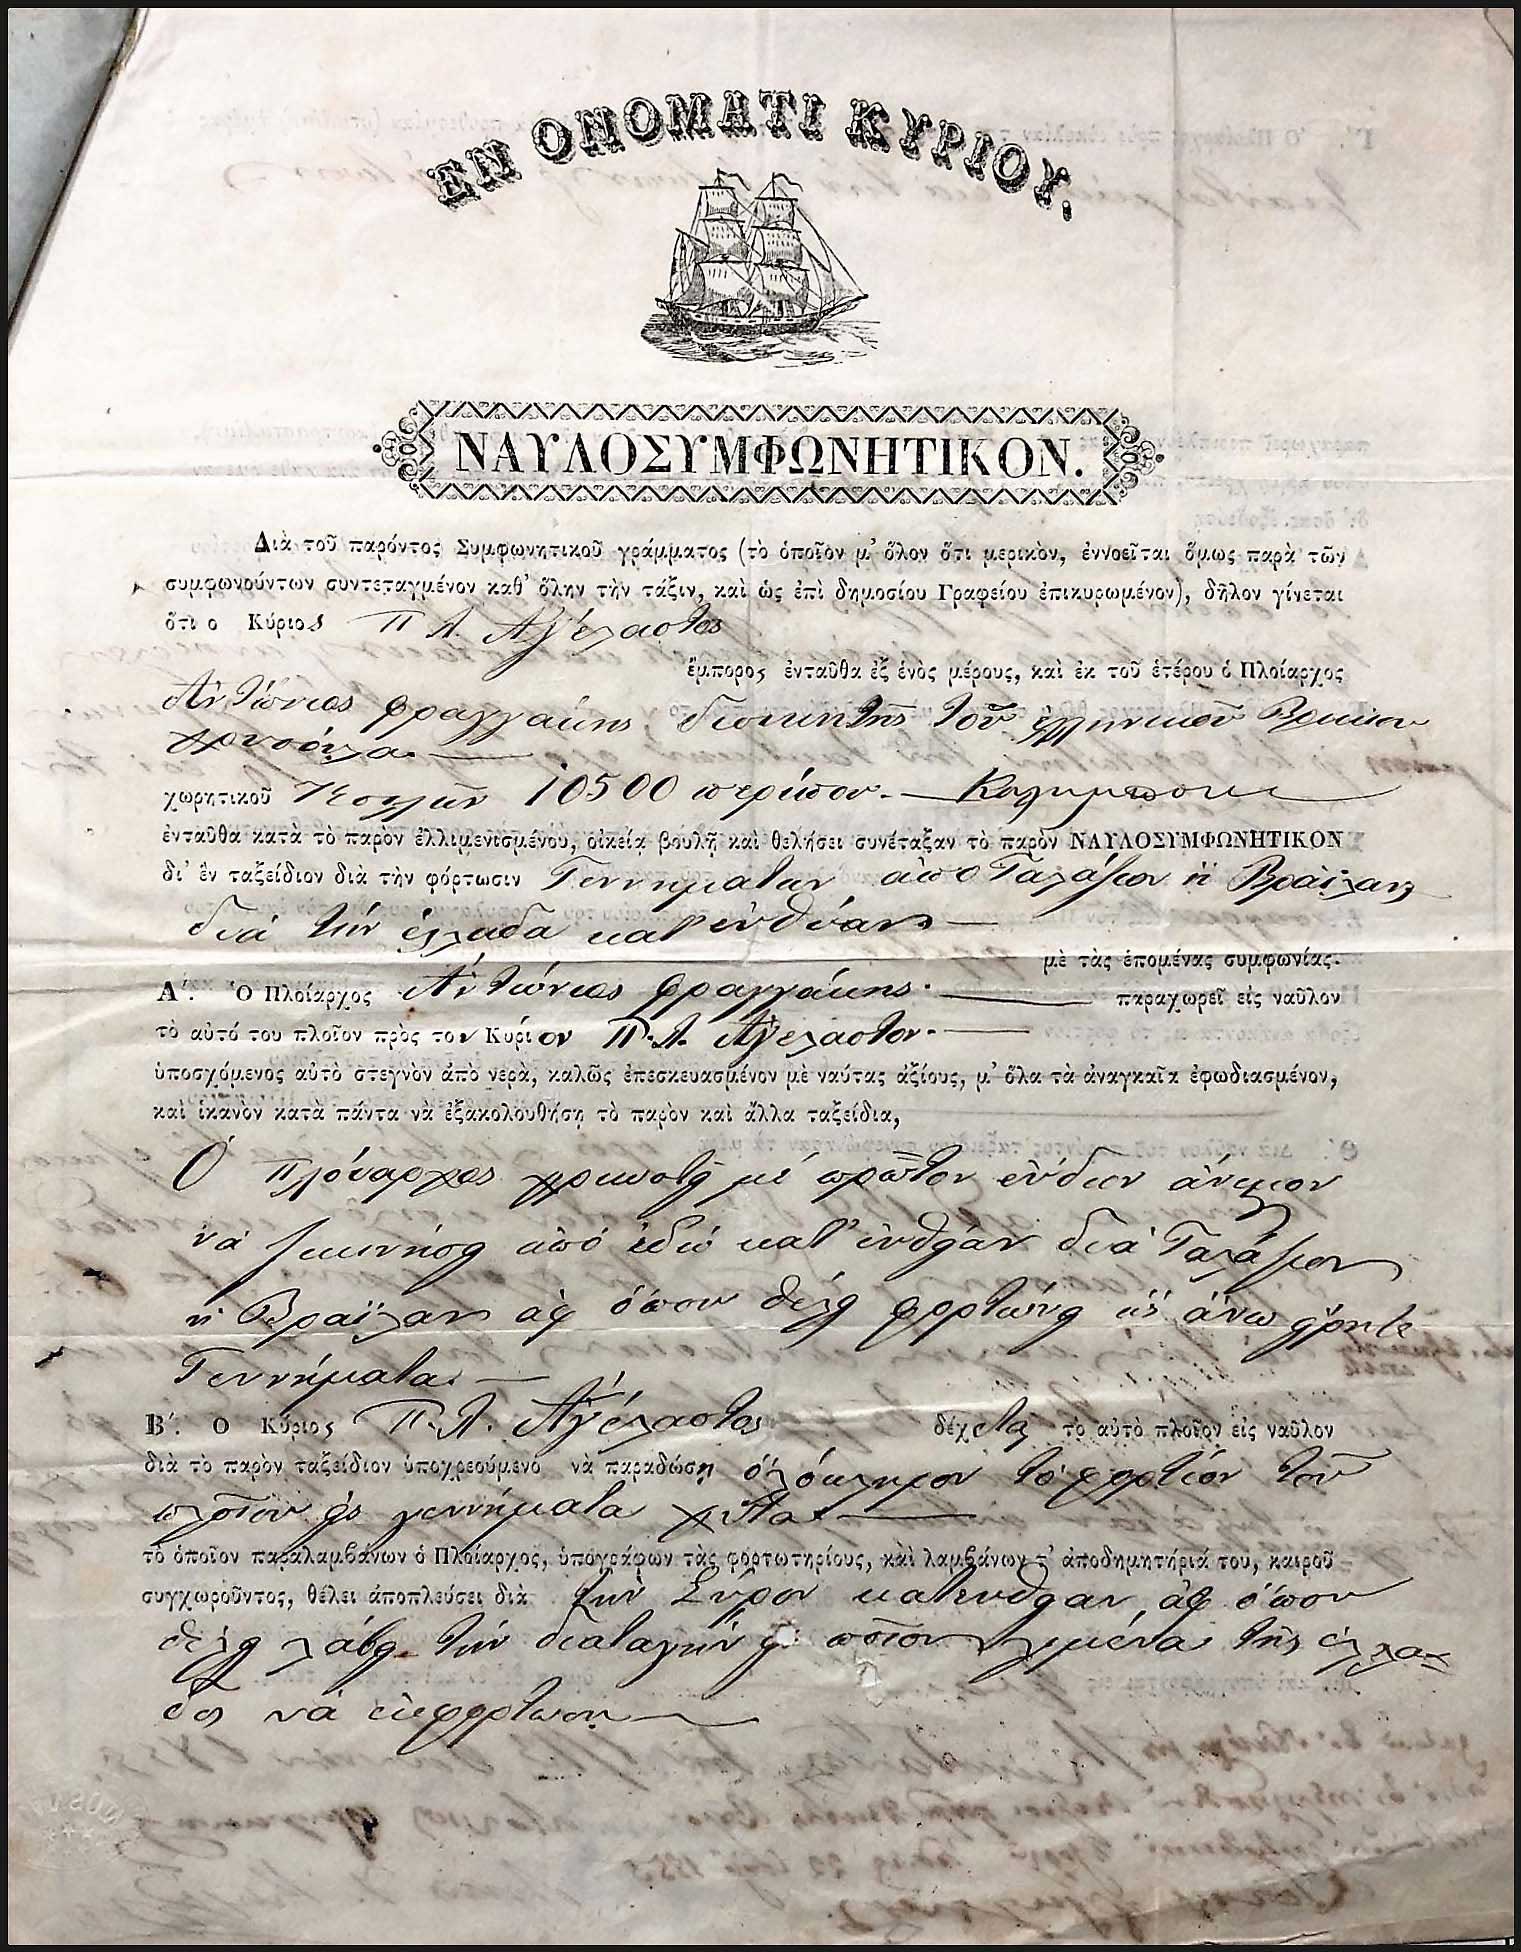 ΕΝ ΟΝΟΜΑΤΙ ΚΥΡΙΟΥ,
ΝΑΥΛΟΣΥΜΦΩΝΗΤΙΚΟΝ.
Διὰ τοῦ παρόντος Συμφωνητικοῦ γράμματος (τὸ ὁποῖον μ' ὅλον ὅτι μερικὸν, ἐννοεῖται ὅμως παρὰ τῶν
συμφωνούντων συντεταγμένον καθ' ὅλην τὴν τάξιν, καὶ ὡς ἐπὶ δημοσίου Γραφείου ἐπικυρωμένον), δῆλον γίνεται
ὅτι ο Κύριος Π Λ. Ἀγέλαστος
ἔμπορος ἐνταῦθα ἐξ ἑνὸς μέρους, καὶ ἐκ τοῦ ἑτέρου ὁ Πλοίαρχος
Ἀντώνιος φραγγάκης διοικητὴς τοῦ ἑλληνικοῦ Βρικίου
χωρητικοῦ Κοιλῶν 10500 περίπου.
ἐνταῦθα κατὰ τὸ παρὸν ἐλλιμενισμένου, οἰκείᾳ βουλῇ καὶ θελήσει συνέταξαν τὸ παρὸν ΝΑΥΛΟΣΥΜΦΩΝΗΤΙΚΟΝ
δι' ἓν ταξείδιον διὰ τὴν φόρτωσιν Γεννημάτων ἀπὸ Γαλάζιον ἢ Βραΐλαν
διὰ τὴν ἑλλάδα κατ' εὐθεῖαν
μὲ τὰς ἑπομένας συμφωνίας.
Α'. Ὁ Πλοίαρχος Ἀντώνιος φραγγάκης. παραχωρεῖ εἰς ναῦλον
τὸ αὐτό του πλοῖον πρὸς τον Κύριον Π. Λ. Ἀγέλαστον.
ὑποσχόμενος αὐτὸ στεγνὸν ἀπὸ νερὰ, καλῶς ἐπεσκευασμένον μὲ ναύτας ἀξίους, μ' ὅλα τὰ ἀναγκαῖα ἐφωδιασμένον,
καὶ ἱκανὸν κατὰ πάντα νὰ ἐξακολουθήσῃ τὸ παρὸν καὶ ἄλλα ταξείδια,
Ὁ πλοίαρχος χρεωστῇ μὲ πρῶτον εὔδιον ἄνεμον
νὰ ξεκινήσῃ ἀπὸ ἐδῶ κατ' εὐθεῖαν διὰ Γαλάζιον
ἢ Βραΐλαν ἀφ' ὅπου θέλῃ φορτώσῃ ὡς ἄνω
Γεννήματα.
Β'. Ο Κύριος Π. Λ. Ἀγέλαστος δέχεται τὸ αὐτὸ πλοῖον εἰς ναῦλον
διὰ τὸ παρὸν ταξείδιον ὑποχρεούμενο νὰ παραδώσῃ ὁλόκληρον τὸ φορτίον τοῦ
πλοίου εἰς γεννήματα
τὸ ὁποῖον παραλαμβάνων ὁ Πλοίαρχος, ὑπογράφων τὰς φορτωτηρίους, καὶ λαμβάνων τ' ἀποδημητήριά του, καιροῦ
συγχωροῦντος, θέλει ἀποπλεύσει διὰ τὴν Σύρον κατευθεῖαν ἀφ' ὅπου
θέλῃ λάβῃ τὴν διαταγὴν εἰς ποῖον λιμένα τῆς ἑλλά-
δος νὰ ἐκφορτώσῃ